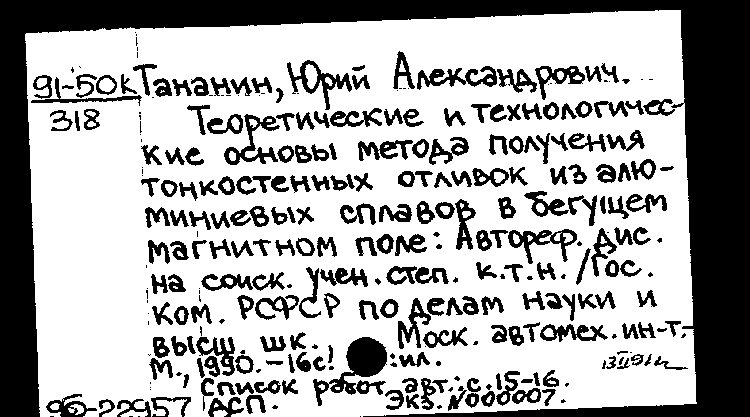 91-50к Тананин, Юрий Александрович.
318 Теоретические и технологичес-
кие основы метода получения
тонкостенных отливок из алю-
миниевых сплавов в бегущем
магнитном поле: Автореф. дис.
на соиск. учен. степ. к.т.н. /Гос.
ком. РСФСР по делам науки и
высш. шк. Моск. автомех. ин-т.-
М., 1990.-16с! :ил.
Список работ авт.: с.15-16.
96-22957 АСП. Экз. N000007.